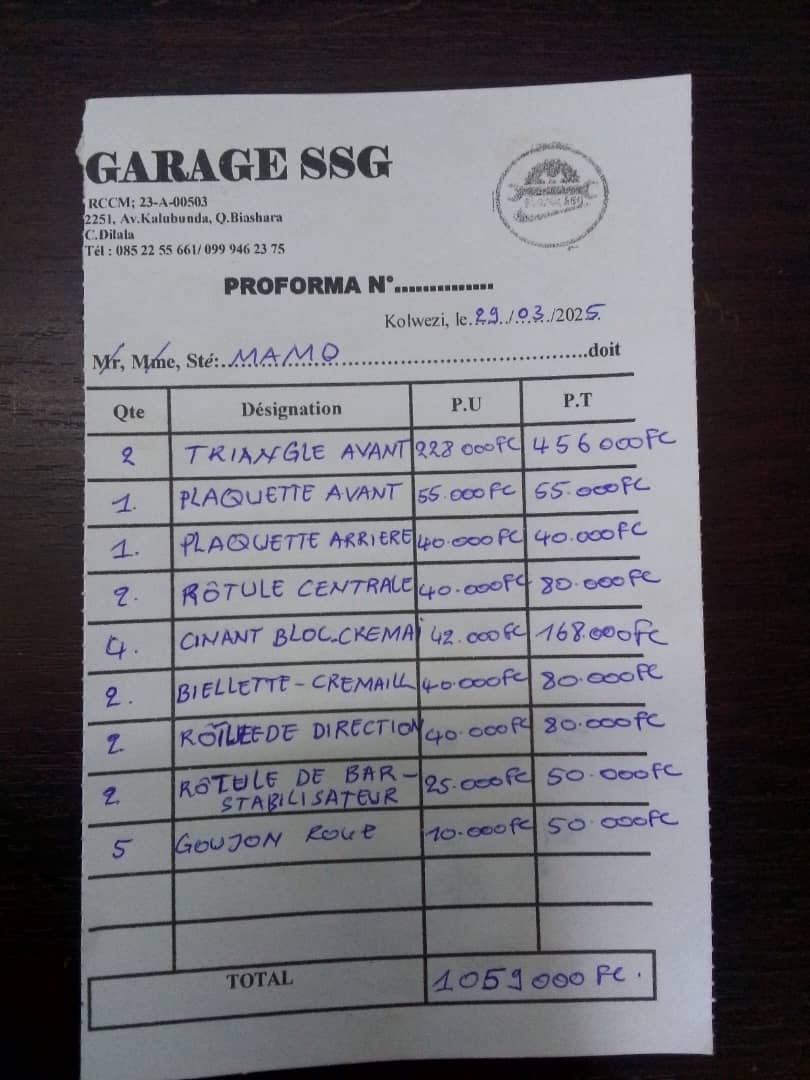 GARAGE SSG
RCCM; 23-A-00503
2251, Av.Kalubunda, Q.Biashara
C.Dilala
Tél : 085 22 55 661/ 099 946 23 75
PROFORMA N°..............
Kolwezi, le.29./.03../2025.
Mr, Mme, Sté:..MAMO..........................................doit
Qte Désignation P.U P.T
2 TRIANGLE AVANT 228 000FC 456 000FC
1. PLAQUETTE AVANT 55.000FC 55.000FC
1. PLAQUETTE ARRIERE 40.000FC 40.000FC
2. RÔTULE CENTRALE 40.000FC 80.000FC
4. CINANT BLOC-CREMAI 42.000FC 168.000FC
2. BIELLETTE-CREMAILL 40.000FC 80.000FC
2 DE DIRECTION 40.000FC 80.000FC
2. RÔTULE DE BAR- 25.000FC 50.000FC
STABILISATEUR
5 GOUJON ROUE 10.000FC 50.000FC
TOTAL 1059000 FC.